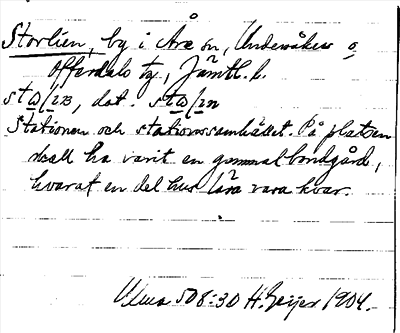 Storlien, by i Åre sn, Undersåkers o
Offerdals tg., Jämtl. l.
dat.
Stationen och stationssamhället. På platsen
skall ha varit en gammal bondgård,
hvaraf en del hus lära vara kvar.
Ulma 508:30 H. Geijer 1904.